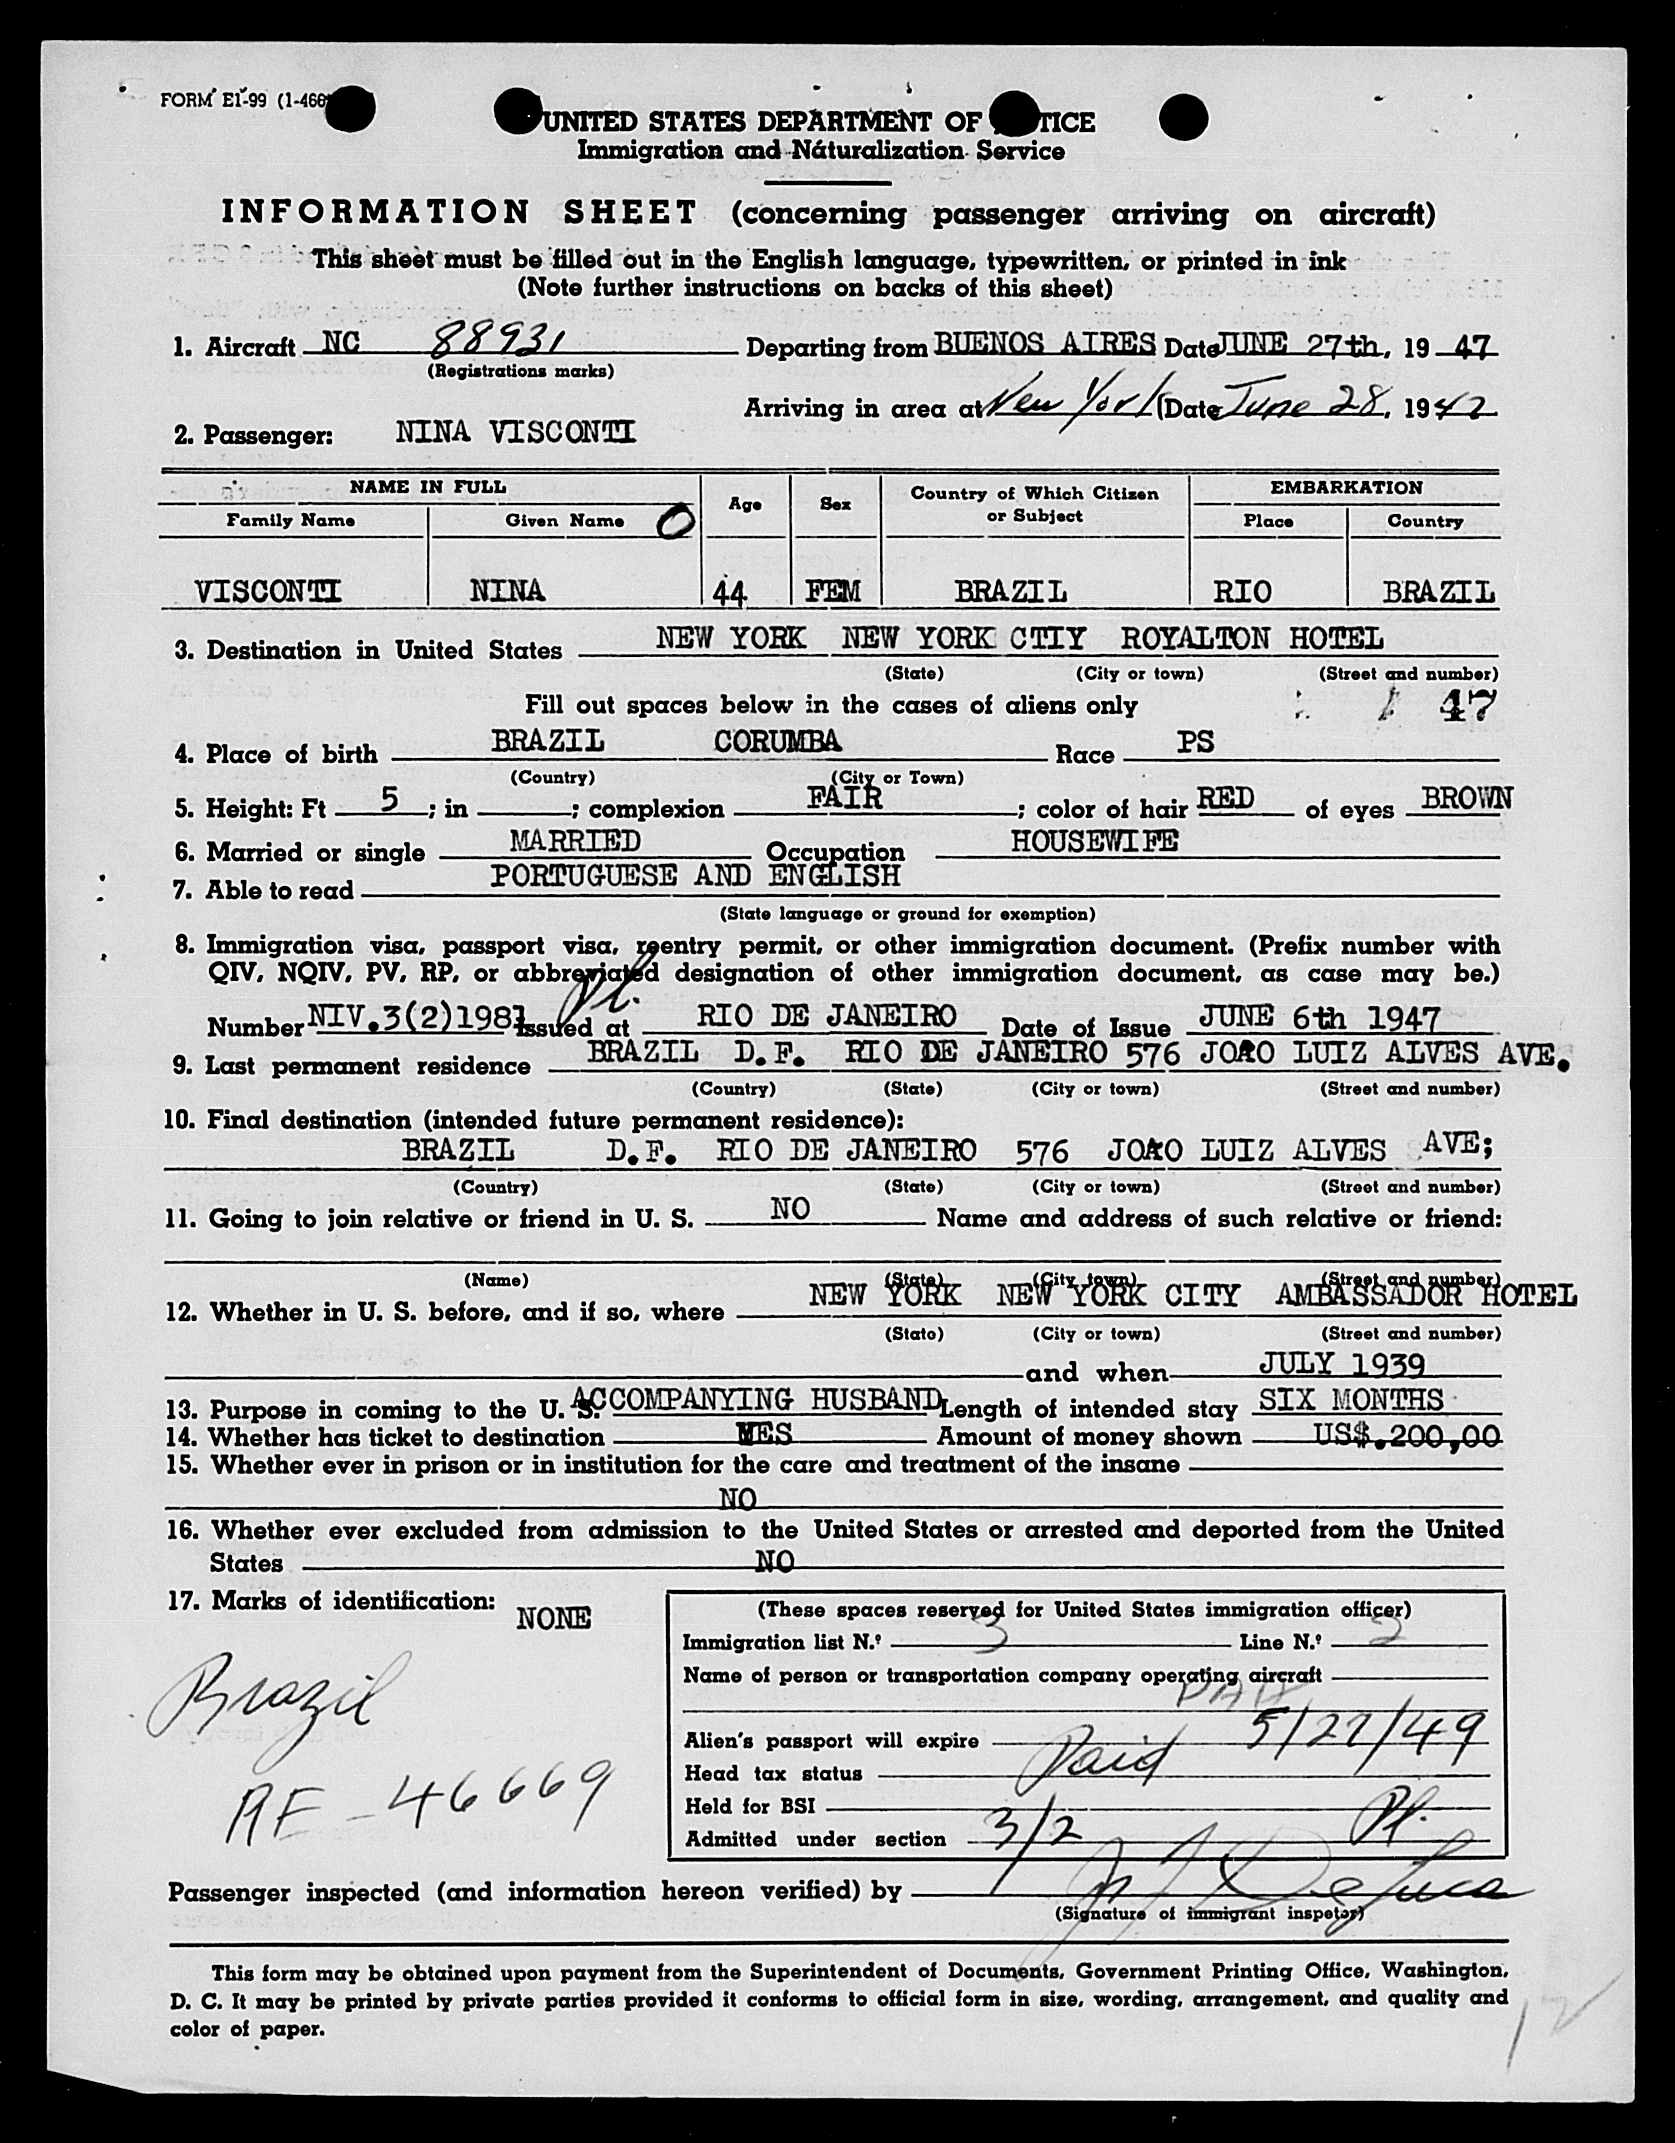 FORM E1-99 (1-466
UNITED STATES DEPARTMENT OF TICE
Immigration and Naturalization Service
INFORMATION SHEET (concerning passenger arriving on aircraft)
This sheet must be filled out in the English language, typewritten, or printed in ink
(Note further instructions on backs of this sheet)
1. Aircraft NC 88931 Departing from BUENOS AIRES Date JUNE 27th, 19 47
(Registrations marks)
Arriving in area at New York Date June 28, 1947
2. Passenger: NINA VISCONTI
NAME IN FULL Age Sex Country of Which Citizen or Subject EMBARKATION
Family Name Given Name O Place Country
VISCONTI NINA 44 FEM BRAZIL RIO BRAZIL
3. Destination in United States NEW YORK NEW YORK CTIY ROYALTON HOTEL
(State) (City or town) (Street and number)
Fill out spaces below in the cases of aliens only 47
4. Place of birth BRAZIL CORUMBA Race PS
(Country) (City or Town)
5. Height: Ft 5 ; in ; complexion FAIR ; color of hair RED of eyes BROWN
6. Married or single MARRIED Occupation HOUSEWIFE
7. Able to read PORTUGUESE AND ENGLISH
(State language or ground for exemption)
8. Immigration visa, passport visa, reentry permit, or other immigration document. (Prefix number with
QIV, NQIV, PV, RP, or abbreviated designation of other immigration document, as case may be.)
Number NIV.3(2)1981 Issued at RIO DE JANEIRO Date of Issue JUNE 6th 1947
9. Last permanent residence BRAZIL D.F. RIO DE JANEIRO 576 JOAO LUIZ ALVES AVE.
(Country) (State) (City or town) (Street and number)
10. Final destination (intended future permanent residence):
BRAZIL D.F. RIO DE JANEIRO 576 JOAO LUIZ ALVES AVE;
(Country) (State) (City or town) (Street and number)
11. Going to join relative or friend in U. S. NO Name and address of such relative or friend:
(Name) (State) (City town) (Street and number)
12. Whether in U. S. before, and if so, where NEW YORK NEW YORK CITY AMBASSADOR HOTEL
(State) (City or town) (Street and number)
and when JULY 1939
13. Purpose in coming to the U. S. ACCOMPANYING HUSBAND Length of intended stay SIX MONTHS
14. Whether has ticket to destination YES Amount of money shown US$.200,00
15. Whether ever in prison or in institution for the care and treatment of the insane
NO
16. Whether ever excluded from admission to the United States or arrested and deported from the United
States NO
17. Marks of identification: NONE
Brazil
RE-46669
(These spaces reserved for United States immigration officer)
Immigration list N.º 3 Line N.º 2
Name of person or transportation company operating aircraft
PAA
Alien's passport will expire 5/27/49
Head tax status Paid
Held for BSI
Admitted under section 3/2 Pl.
Passenger inspected (and information hereon verified) by
(Signature of immigrant inspetor)
This form may be obtained upon payment from the Superintendent of Documents, Government Printing Office, Washington,
D. C. It may be printed by private parties provided it conforms to official form in size, wording, arrangement, and quality and
color of paper.
12